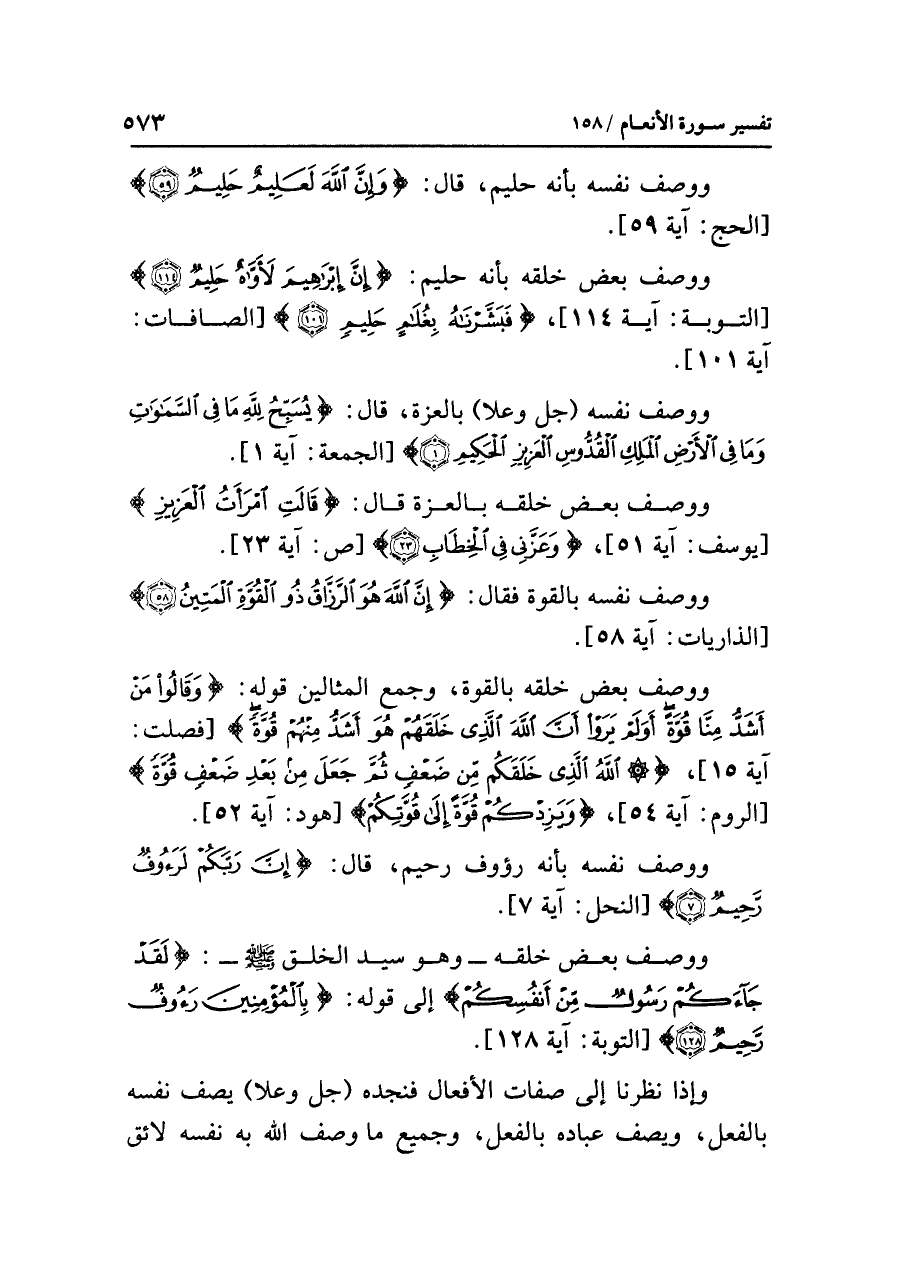 تفسير سورة الأنعام / ١٥٨ ٥٧٣
ووصف نفسه بأنه حليم، قال: ﴿وَإِنَّ ٱللَّهَ لَعَلِيمٌ حَلِيمٌ ٥٩﴾
[الحج: آية ٥٩].
ووصف بعض خلقه بأنه حليم: ﴿إِنَّ إِبْرَٰهِيمَ لَأَوَّٰهٌ حَلِيمٌ ١١٤﴾
[التوبة: آية ١١٤]، ﴿فَبَشَّرْنَٰهُ بِغُلَٰمٍ حَلِيمٍ ١٠١﴾ [الصافات:
آية ١٠١].
ووصف نفسه (جل وعلا) بالعزة، قال: ﴿يُسَبِّحُ لِلَّهِ مَا فِى ٱلسَّمَٰوَٰتِ
وَمَا فِى ٱلْأَرْضِ ٱلْمَلِكِ ٱلْقُدُّوسِ ٱلْعَزِيزِ ٱلْحَكِيمِ ١﴾ [الجمعة: آية ١].
ووصف بعض خلقه بالعزة قال: ﴿قَالَتِ ٱمْرَأَتُ ٱلْعَزِيزِ﴾
[يوسف: آية ٥١]، ﴿وَعَزَّنِى فِى ٱلْخِطَابِ ٢٣﴾ [ص: آية ٢٣].
ووصف نفسه بالقوة فقال: ﴿إِنَّ ٱللَّهَ هُوَ ٱلرَّزَّاقُ ذُو ٱلْقُوَّةِ ٱلْمَتِينُ ٥٨﴾
[الذاريات: آية ٥٨].
ووصف بعض خلقه بالقوة، وجمع المثالين قوله: ﴿وَقَالُوا۟ مَنْ
أَشَدُّ مِنَّا قُوَّةً ۖ أَوَلَمْ يَرَوْا۟ أَنَّ ٱللَّهَ ٱلَّذِى خَلَقَهُمْ هُوَ أَشَدُّ مِنْهُمْ قُوَّةً ۖ﴾ [فصلت:
آية ١٥]، ﴿۞ ٱللَّهُ ٱلَّذِى خَلَقَكُم مِّن ضَعْفٍ ثُمَّ جَعَلَ مِنۢ بَعْدِ ضَعْفٍ قُوَّةً﴾
[الروم: آية ٥٤]، ﴿وَيَزِدْكُمْ قُوَّةً إِلَىٰ قُوَّتِكُمْ﴾ [هود: آية ٥٢].
ووصف نفسه بأنه رؤوف رحيم، قال: ﴿إِنَّ رَبَّكُمْ لَرَءُوفٌ
رَّحِيمٌ ٧﴾ [النحل: آية ٧].
ووصف بعض خلقه ـ وهو سيد الخلق ﷺ ـ : ﴿لَقَدْ
جَآءَكُمْ رَسُولٌ مِّنْ أَنفُسِكُمْ﴾ إلى قوله: ﴿بِٱلْمُؤْمِنِينَ رَءُوفٌ
رَّحِيمٌ ١٢٨﴾ [التوبة: آية ١٢٨].
وإذا نظرنا إلى صفات الأفعال فنجده (جل وعلا) يصف نفسه
بالفعل، ويصف عباده بالفعل، وجميع ما وصف الله به نفسه لائق